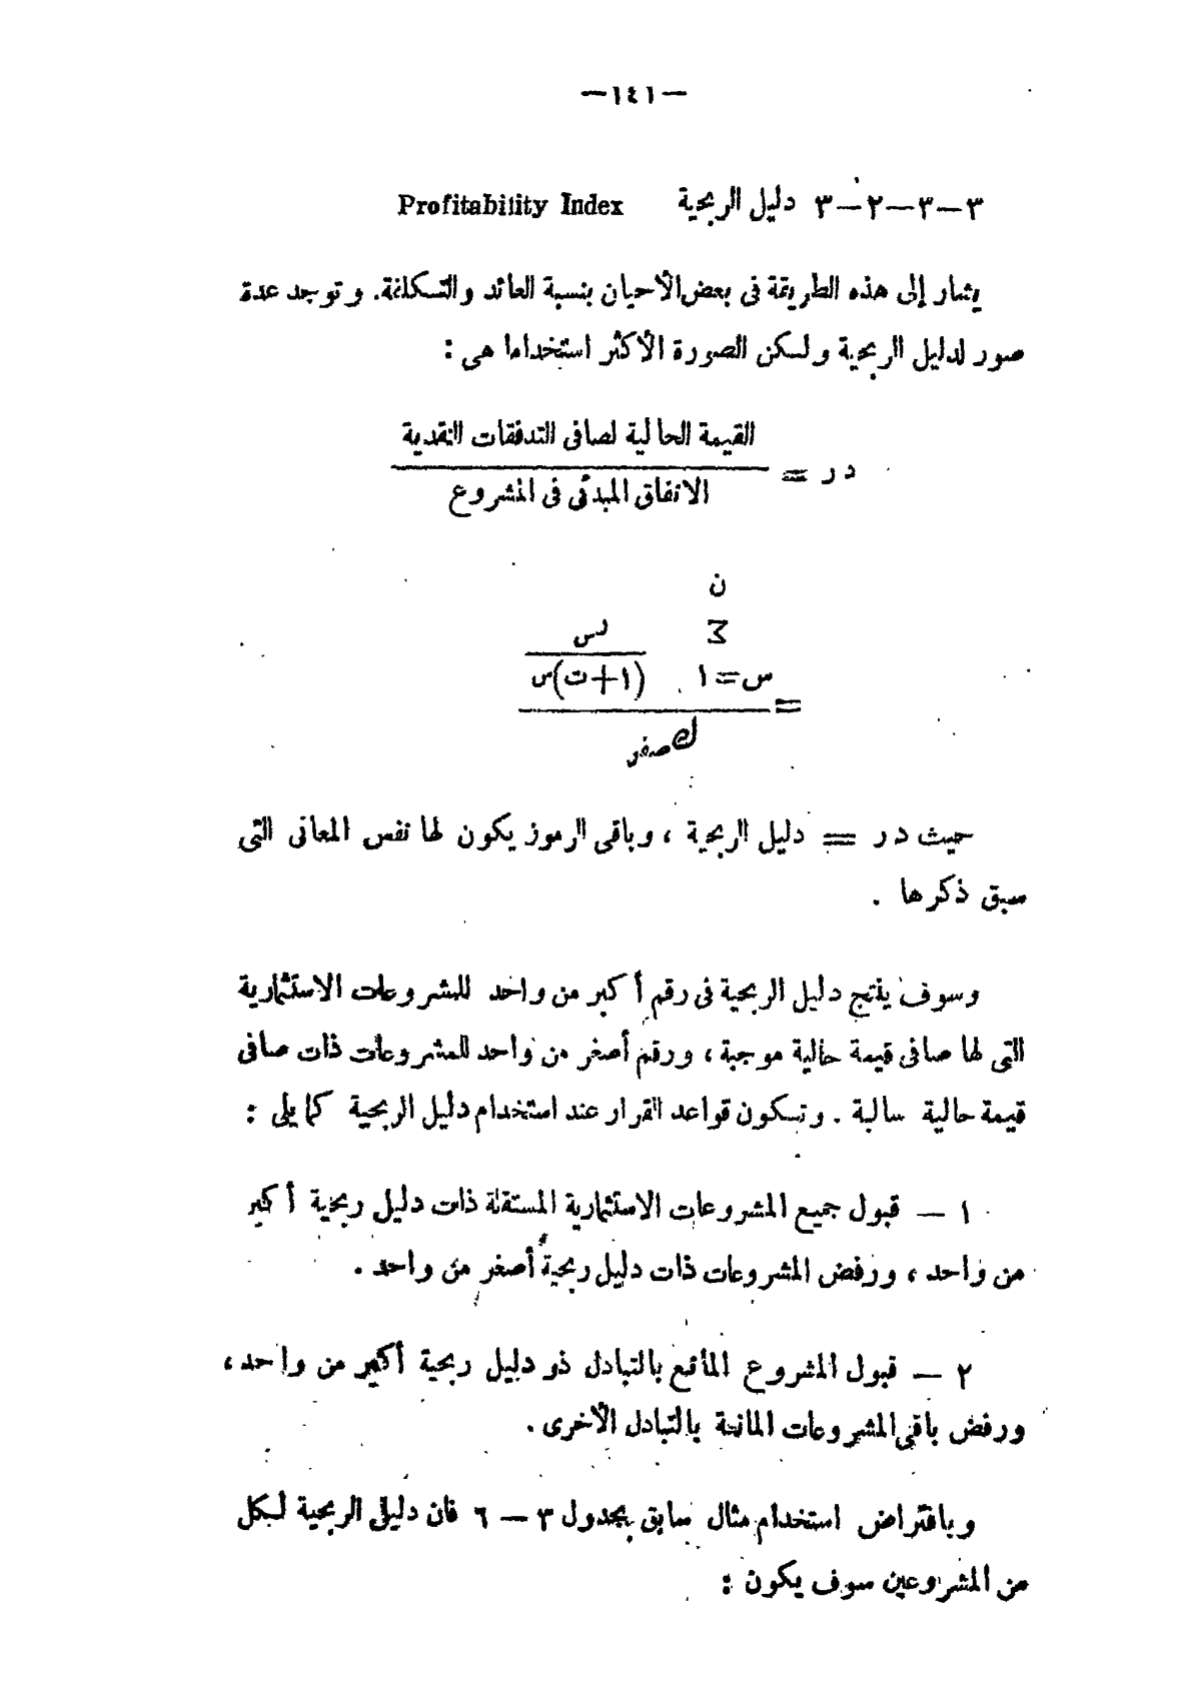 —١٤١—
٣—٣—٢—٣ دليل الربحية Profitability Index
يشار إلى هذه الطريقة فى بعض الأحيان بنسبة العائد والتكلفة. وتوجد عدة
صور لدليل الربحية ولكن الصورة الأكثر استخداما هى :
القيمة الحالية لصافى التدفقات النقدية
د ر =
الانفاق المبدئى فى المشروع
ن
Σ
س=١
(١+ت)س
=
صفر
حيث د ر = دليل الربحية ، وباقى الرموز يكون لها نفس المعانى التى
سبق ذكرها .
وسوف ينتج دليل الربحية فى رقم أكبر من واحد للمشروعات الاستثمارية
التى لها صافى قيمة حالية موجبة ، ورقم أصغر من واحد للمشروعات ذات صافى
قيمة حالية سالبة . وتكون قواعد القرار عند استخدام دليل الربحية كما يلى :
١ — قبول جميع المشروعات الاستثمارية المستقلة ذات دليل ربحية أكبر
من واحد ، ورفض المشروعات ذات دليل ربحية أصغر من واحد .
٢ — قبول المشروع المانع بالتبادل ذو دليل ربحية أكبر من واحد ،
ورفض باقى المشروعات المانعة بالتبادل الأخرى .
وبافتراض استخدام مثال سابق بجدول ٣ — ٦ فان دليلى الربحية لكل
من المشروعين سوف يكون :